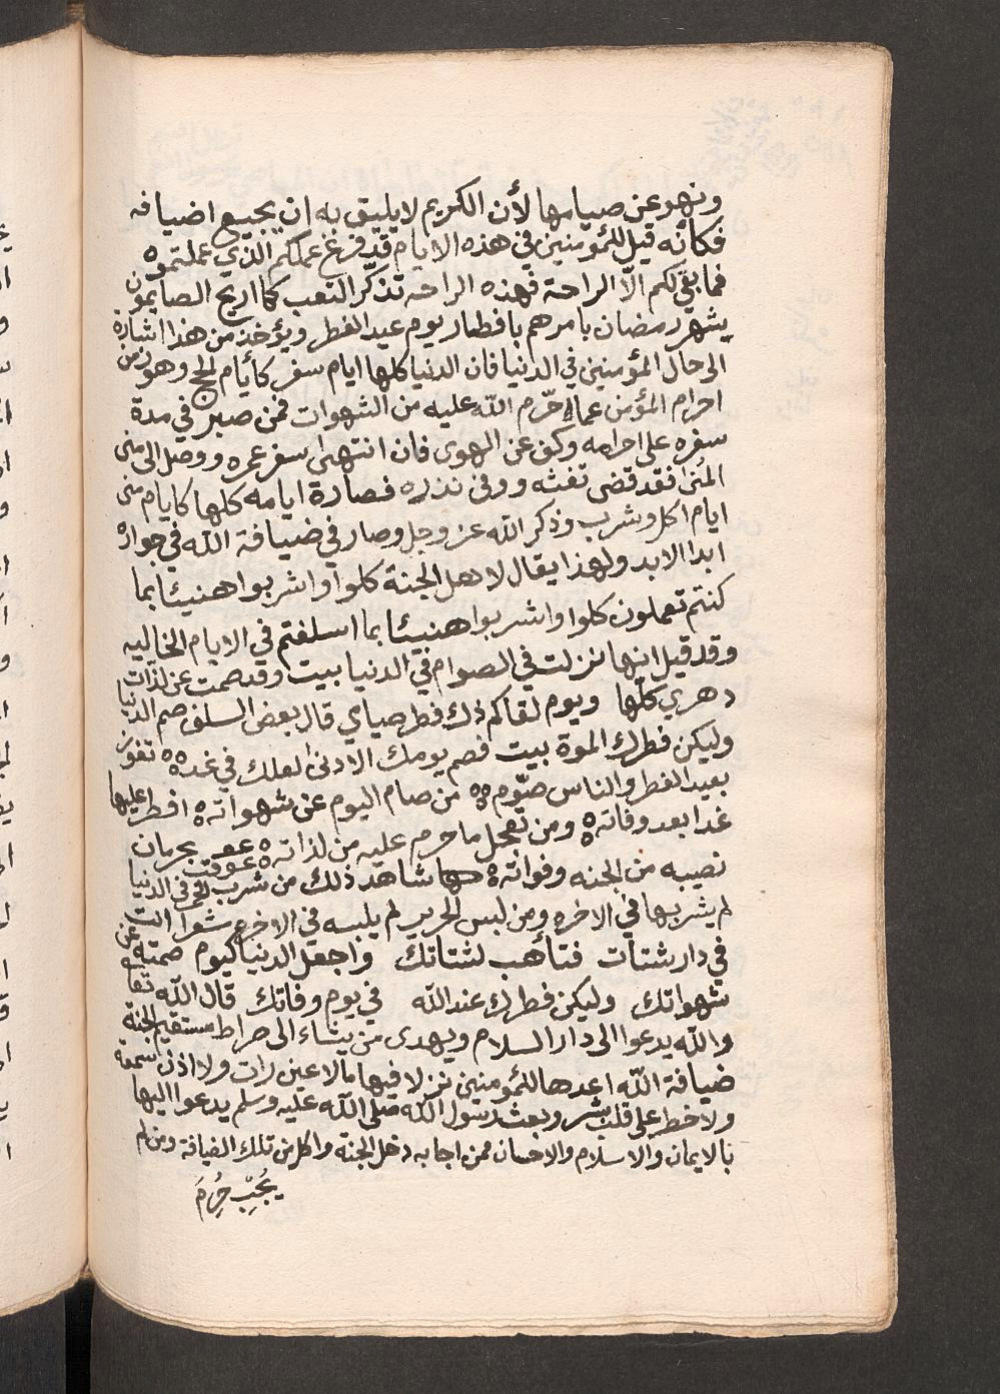 ونهو عن صيامها لأن الكريم لا يليق به ان يجيع اضيافه
فكانه قيل للمؤمنين في هذه الايام قد فرغ عملكم الذي عملتموه
فما بقي لكم الا الراحة فهذه الراحه تذكر التعب كما اريح الصايمون
بشهر رمضان بامرهم بافطار يوم عيد الفطر ويؤخذ من هذا اشارة
الى حال المؤمنين في الدنيا فان الدنيا كلها ايام سفر كأيام الحج وهو زمن
احرام المؤمن عما حرّم الله عليه من الشهوات فمن صبر في مدة
سفره على احرامه وكف عن الهوى فان انتهى سفر عمره ووصل الى منى
المنى فقد قضى تفثه ووفى نذره فصارة ايامه كلها كايام منى
ايام اكل وشرب وذكر الله عز وجل وصار في ضيافة الله في جواره
ابدا الابد ولهذا يقال لاهل الجنة كلوا واشربوا هنيئا بما
كنتم تعملون كلوا واشربوا هنيئا بما اسلفتم في الايام الخاليه
وقد قيل انها نزلت في الصوام في الدنيا بيت وقد صمت عن لذات
دهري كلّها ويوم لقاكم ذك فطر صيامي قال بعض السلف صم الدنيا
وليكن فطرك الموة بيت فصم يومك الادنى لعلك في غد تفوز
بعيد الفطر والناس صوّم من صام اليوم عن شهواته افطر عليها
غدا بعد وفاته ومن تعجل ما حرم عليه من لذاته عوقت بحرمان
نصيبه من الجنه وفواته شاهد ذلك من شرب الخمر في الدنيا
لم يشربها في الاخره ومن لبس الحرير لم يلبسه في الاخره شعر انت
في دار شتات فتأهب لشتاتك واجعل الدنيا كيوم صمته عن
شهواتك وليكن فطرك عند الله في يوم وفاتك قال الله تعا
والله يدعوا الى دار السلام ويهدى من يشاء الى صراط مستقيم الجنة
ضيافة الله اعدها للمؤمنين نزلا فيها ما لا عين رات ولا اذن سمعة
ولا خطر على قلب بشر وبعث رسول الله صلى الله عليه وسلم يدعوا اليها
بالايمان والاسلام والاحسان فمن اجابه دخل الجنة واكل من تلك الضيافة ومن لم
يُجِبْ حُرِمَ